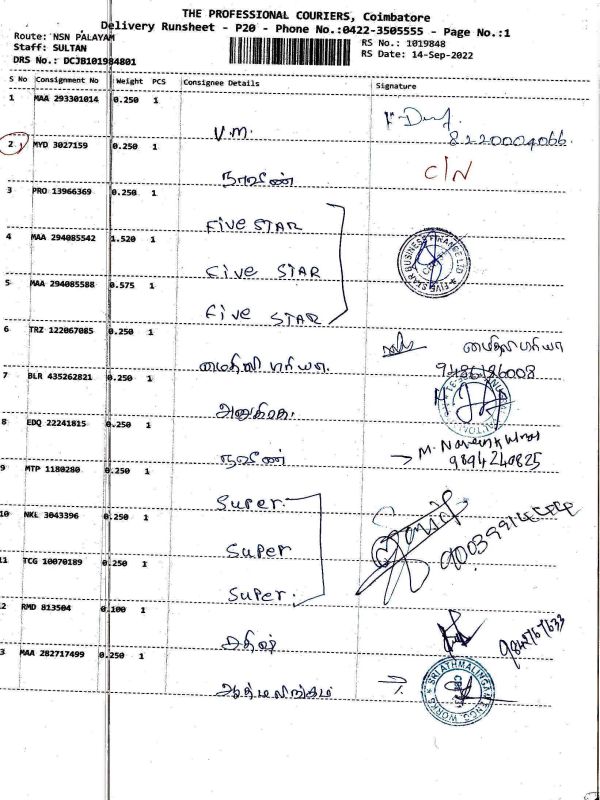 THE PROFESSIONAL COURIERS, Coimbatore
Delivery Runsheet - P20 - Phone No.:0422-3505555 - Page No.:1
Route: NSN PALAYAM
RS No.: 1019848
Staff: SULTAN
RS Date: 14-Sep-2022
DRS No.: DCJB101984801
S No Consignment No Weight PCS Consignee Details Signature
1 MAA 293301014 0.250 1
V.M. 8220004066
2 MYD 3027159 0.250 1
நவீண் C/N
3 PRO 13966369 0.250 1
Five STAR
4 MAA 294085542 1.520 1
Five STAR
FIVE STAR BUSINESS FINANCE LTD
5 MAA 294085588 0.575 1
Five STAR
6 TRZ 122067085 0.250 1
மைதிலி பிரியா. மைதிலி பிரியா
9486186008
7 BLR 435262821 0.250 1
8 EDQ 22241815 0.250 1
நவீண் M. Naveen Kumar
9894240825
9 MTP 1180280 0.250 1
Super
10 NKL 3043396 0.250 1
Super
11 TCG 10070189 0.250 1
Super.
2 RMD 813504 0.100 1
3 MAA 282717499 0.250 1
ஆத்மலிங்கம்
SRI ATHMALINGA ENGG. WORKS